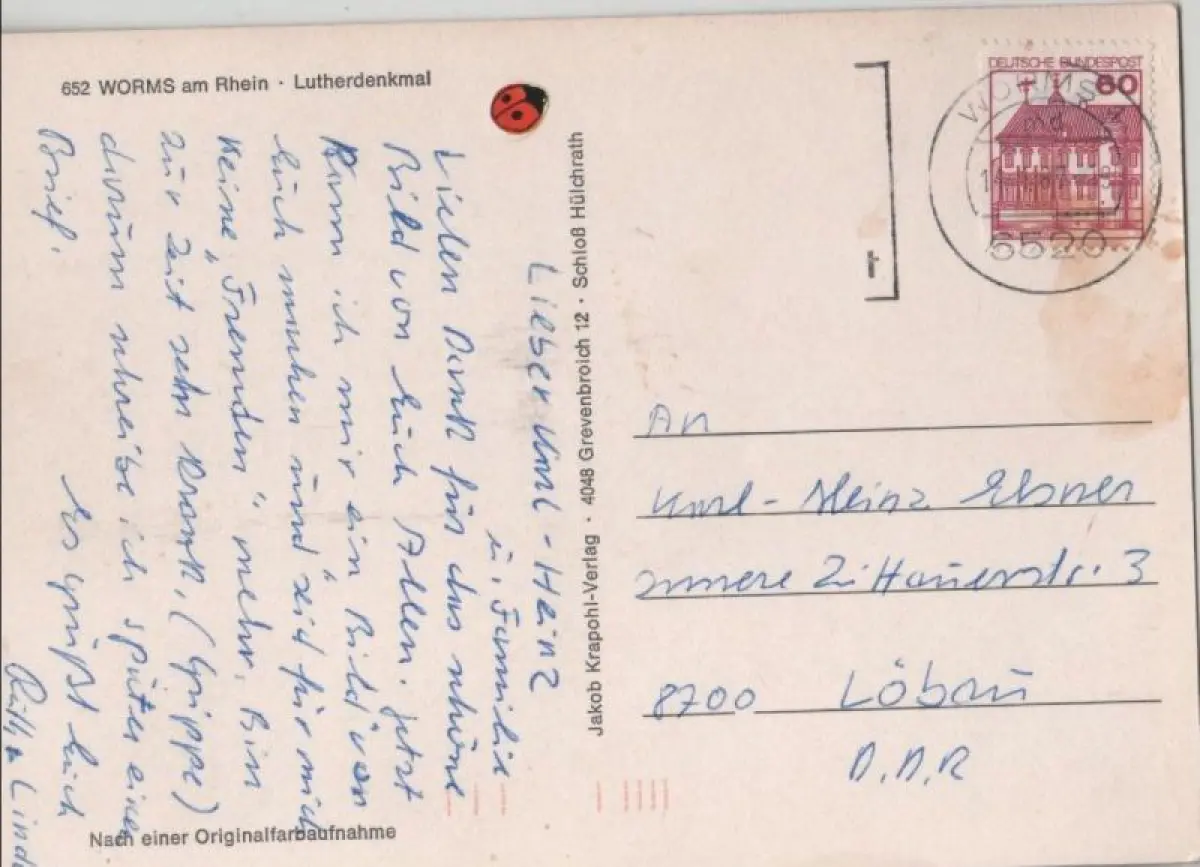 652 WORMS am Rhein · Lutherdenkmal
Lieber Karl-Heinz
u. Familie
Vielen Dank für das schöne
Bild von Euch Allen. Jetzt
kann ich mir ein Bild von
Euch machen und seid für mich
keine "Fremden" mehr. Bin
zur Zeit sehr krank, (Grippe)
darum schreibe ich später einen
Brief.
Es grüßt Euch
Ruth
Nach einer Originalfarbaufnahme
Jakob Krapohl-Verlag · 4048 Grevenbroich 12 · Schloß Hülchrath
DEUTSCHE BUNDESPOST
60
WORMS
6520
An
Karl-Heinz Ebner
Innere Zittauerstr. 3
8700 Löbau
D.D.R